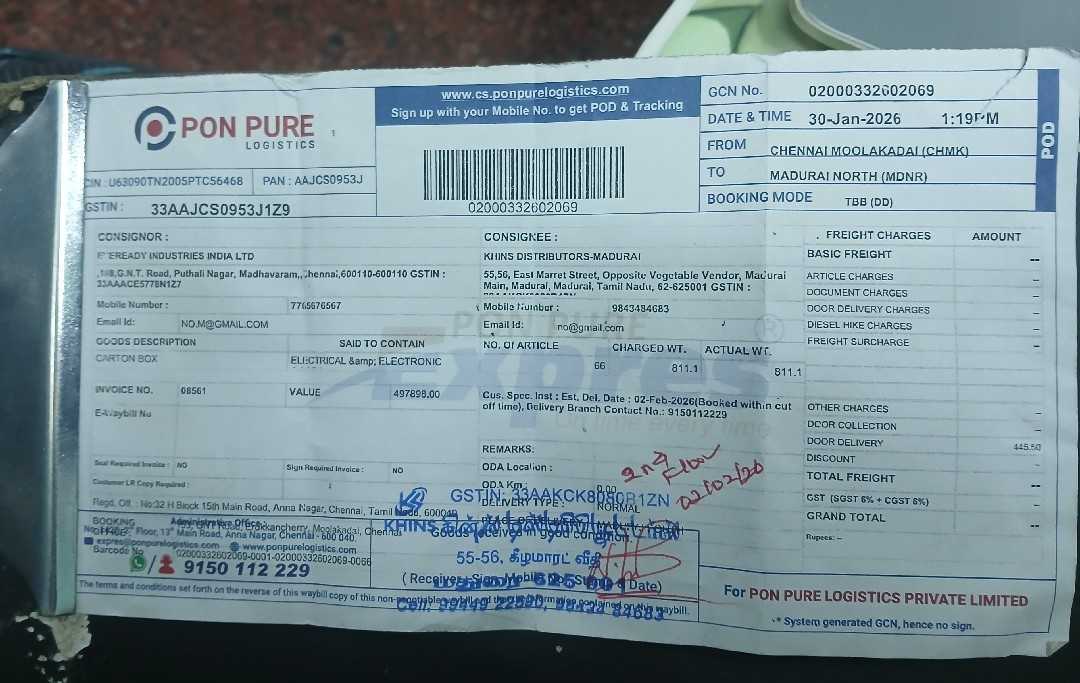 PON PURE
LOGISTICS
www.cs.ponpurelogistics.com
Sign up with your Mobile No. to get POD & Tracking
02000332602069
CIN : U63090TN2005PTC56468 PAN : AAJCS0953J
GSTIN : 33AAJCS0953J1Z9
GCN No. 02000332602069
DATE & TIME 30-Jan-2026 1:19PM
FROM CHENNAI MOOLAKADAI (CHMK)
TO MADURAI NORTH (MDNR)
BOOKING MODE TBB (DD)
POD
CONSIGNOR :
EVEREADY INDUSTRIES INDIA LTD
G.N.T. Road, Puthali Nagar, Madhavaram,,Chennai,600110-600110 GSTIN :
33AAACE5778N1Z7
Mobile Number : 7765676567
Email Id: NO.M@GMAIL.COM
GOODS DESCRIPTION SAID TO CONTAIN
CARTON BOX ELECTRICAL &amp; ELECTRONIC
INVOICE NO. 08561 VALUE 497898.00
E-Waybill No
Seal Required Invoice : NO Sign Required Invoice : NO
Customer LR Copy Required :
CONSIGNEE :
KHINS DISTRIBUTORS-MADURAI
55,56, East Marret Street, Opposite Vegetable Vendor, Madurai
Main, Madurai, Madurai, Tamil Nadu, 62-625001 GSTIN :
Mobile Number : 9843484683
Email Id: no@gmail.com
NO. OF ARTICLE CHARGED WT. ACTUAL WT.
66 811.1 811.1
Cus. Spec. Inst : Est. Del. Date : 02-Feb-2026(Booked within cut
off time), Delivery Branch Contact No.: 9150112229
PON PURE
Expres
on time every time
REMARKS:
ODA Location :
ODA Km : 0.00
DELIVERY TYPE : NORMAL
02/02/26
FREIGHT CHARGES AMOUNT
BASIC FREIGHT --
ARTICLE CHARGES --
DOCUMENT CHARGES --
DOOR DELIVERY CHARGES --
DIESEL HIKE CHARGES --
FREIGHT SURCHARGE --
OTHER CHARGES --
DOOR COLLECTION --
DOOR DELIVERY 445.50
DISCOUNT --
TOTAL FREIGHT --
GST (SGST 6% + CGST 6%) --
GRAND TOTAL --
Rupees: --
Regd. Off. : No:32 H Block 15th Main Road, Anna Nagar, Chennai, Tamil Nadu, 600040
BOOKING
OFFICE
Administrative Office:
Floor, 13th Main Road, Anna Nagar, Chennai - 600 040.
expres@ponpurelogistics.com www.ponpurelogistics.com
Barcode No 02000332602069-0001-02000332602069-0066
9150 112 229
GSTIN: 33AAKCK8080R1ZN
KHINS
Goods received in good condition.
55-56, கீழமாரட் வீதி
மதுரை - 625 001
Cell: 99449 22590, 98434 84683
The terms and conditions set forth on the reverse of this waybill copy of this non-negotiable waybill and the information contained on this waybill.
For PON PURE LOGISTICS PRIVATE LIMITED
* System generated GCN, hence no sign.